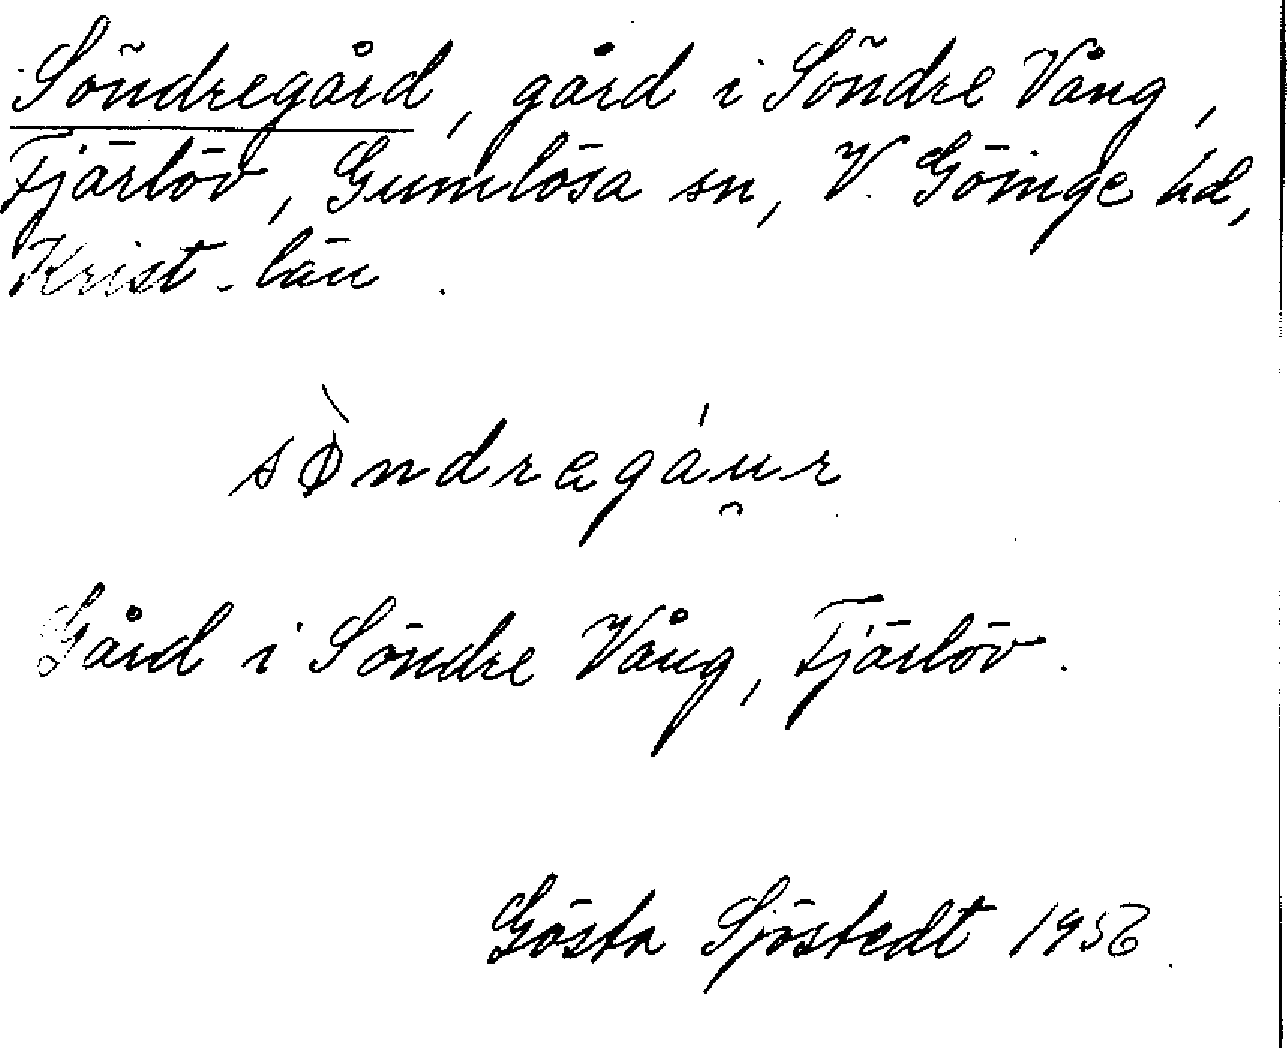 Söndregård, gård i Söndre Vång,
Fjärlöv, Gumlösa sn, V. Göinge hd,
Krist-län.
sø̀ndregáu̯r
Gård i Söndre Vång, Fjärlöv.
Gösta Sjöstedt 1956.